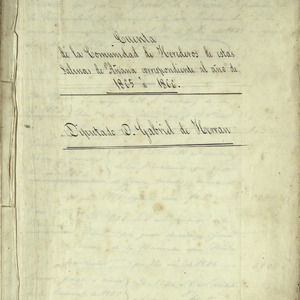 Cuenta
de la Comunidad de Herederos de estas
Salinas de Añana correspondiente al año de
1865 à 1866.
Diputado D. Gabriel de